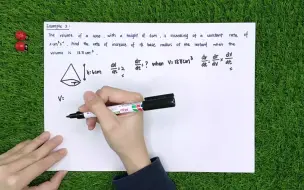 Example 3 :
The volume of a cone, with a height of 6cm, is increasing at a constant rate of
Find the rate of increase of its base radius at the instant when the
volume is
h=6cm dV/dt = 2 dr/dt = ? when V= dr/dt = dr/dV × dV/dt
V=